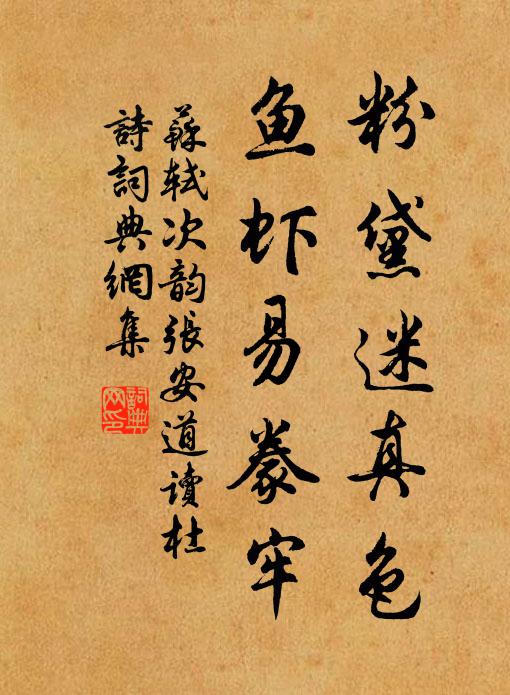 粉黛迷真色
鱼虾易豢牢
蘇轼次韵張安道讀杜
詩詞典網集
詞典
网印